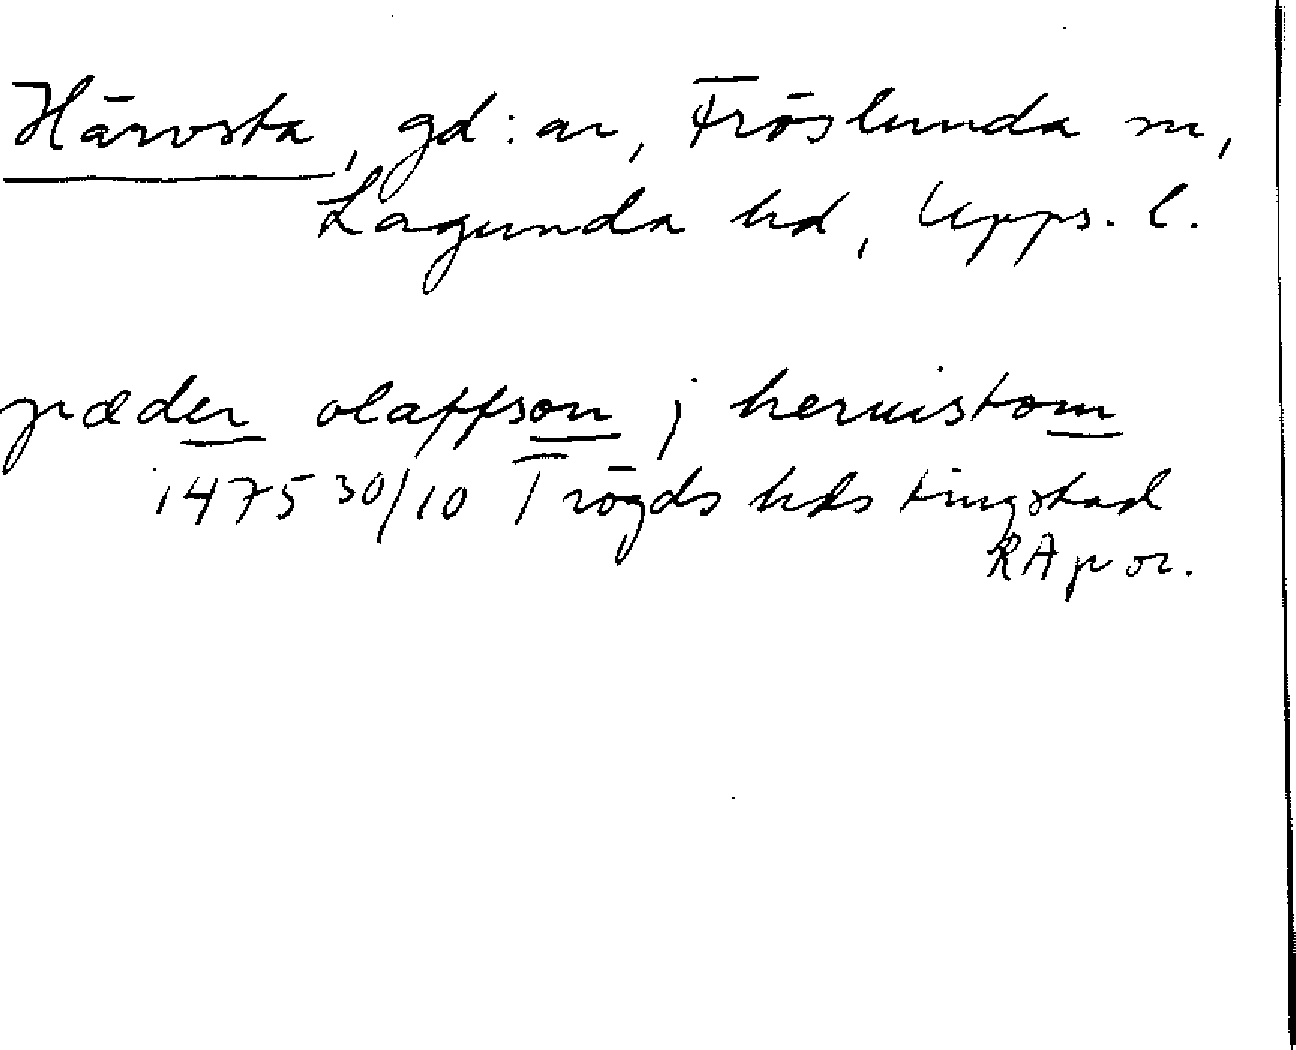 Härvsta, gd:ar, Fröslunda sn,
Lagunda hd, Upps. l.
pæder olaffson j heruistom
1475 30/10 Trögds hds tingstad
RA por.